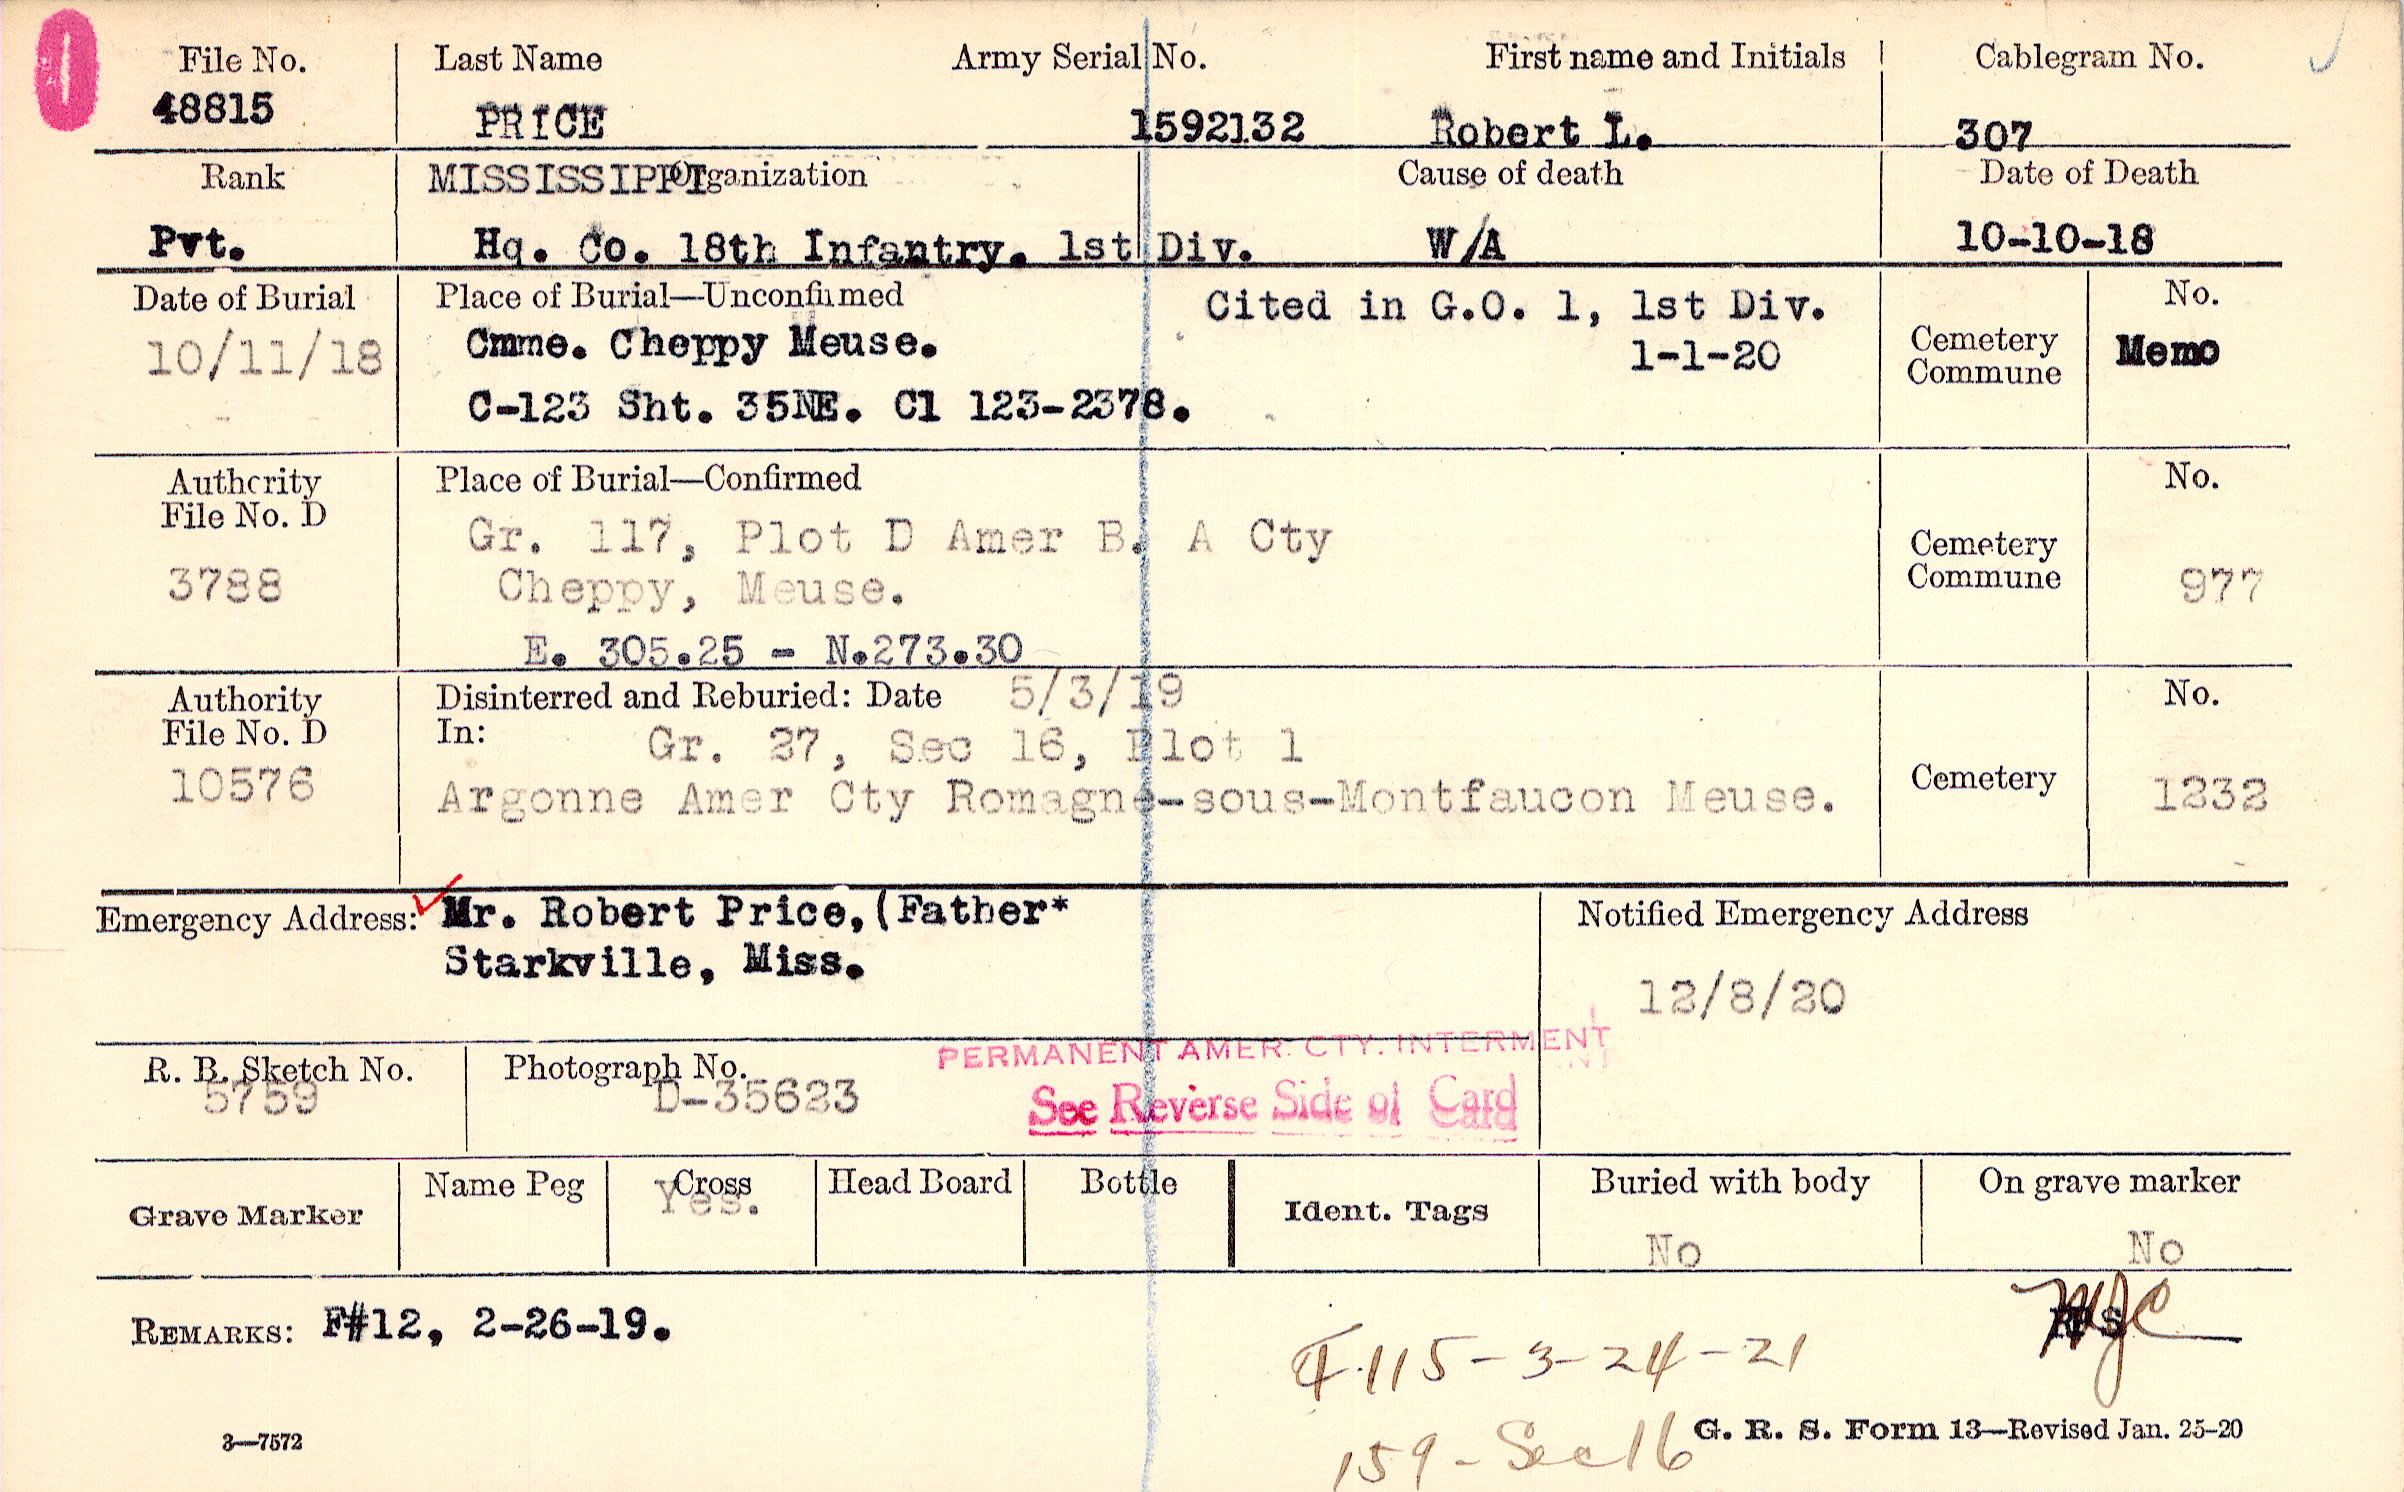 File No. Last Name Army Serial No. First name and Initials Cablegram No.
48815 PRICE 1592132 Robert L. 307
Rank MISSISSIPPI Organization Cause of death Date of Death
Pvt. Hq. Co. 18th Infantry. 1st Div. W/A 10-10-18
Date of Burial Place of Burial—Unconfirmed Cited in G.O. 1, 1st Div. No.
10/11/18 Cmme. Cheppy Meuse. 1-1-20 Cemetery Commune Memo
C-123 Sht. 35NE. Cl 123-2378.
Authority File No. D Place of Burial—Confirmed No.
Gr. 117, Plot D Amer B. A Cty
3788 Cheppy, Meuse. Cemetery Commune 977
E. 305.25 - N.273.30
Authority File No. D Disinterred and Reburied: Date 5/3/19 No.
In: Gr. 27, Sec 16, Plot 1
10576 Argonne Amer Cty Romagne-sous-Montfaucon Meuse. Cemetery 1232
Emergency Address: Mr. Robert Price, (Father* Notified Emergency Address
Starkville, Miss.
12/8/20
PERMANENT AMER. CTY. INTERMENT
R. B. Sketch No. Photograph No.
5759 D-35623 See Reverse Side of Card
Grave Marker Name Peg Cross Head Board Bottle Ident. Tags Buried with body On grave marker
Yes. No No
REMARKS: F#12, 2-26-19.
115-3-24-21
159-Sec 16
3—7572 G. R. S. Form 13—Revised Jan. 25-20